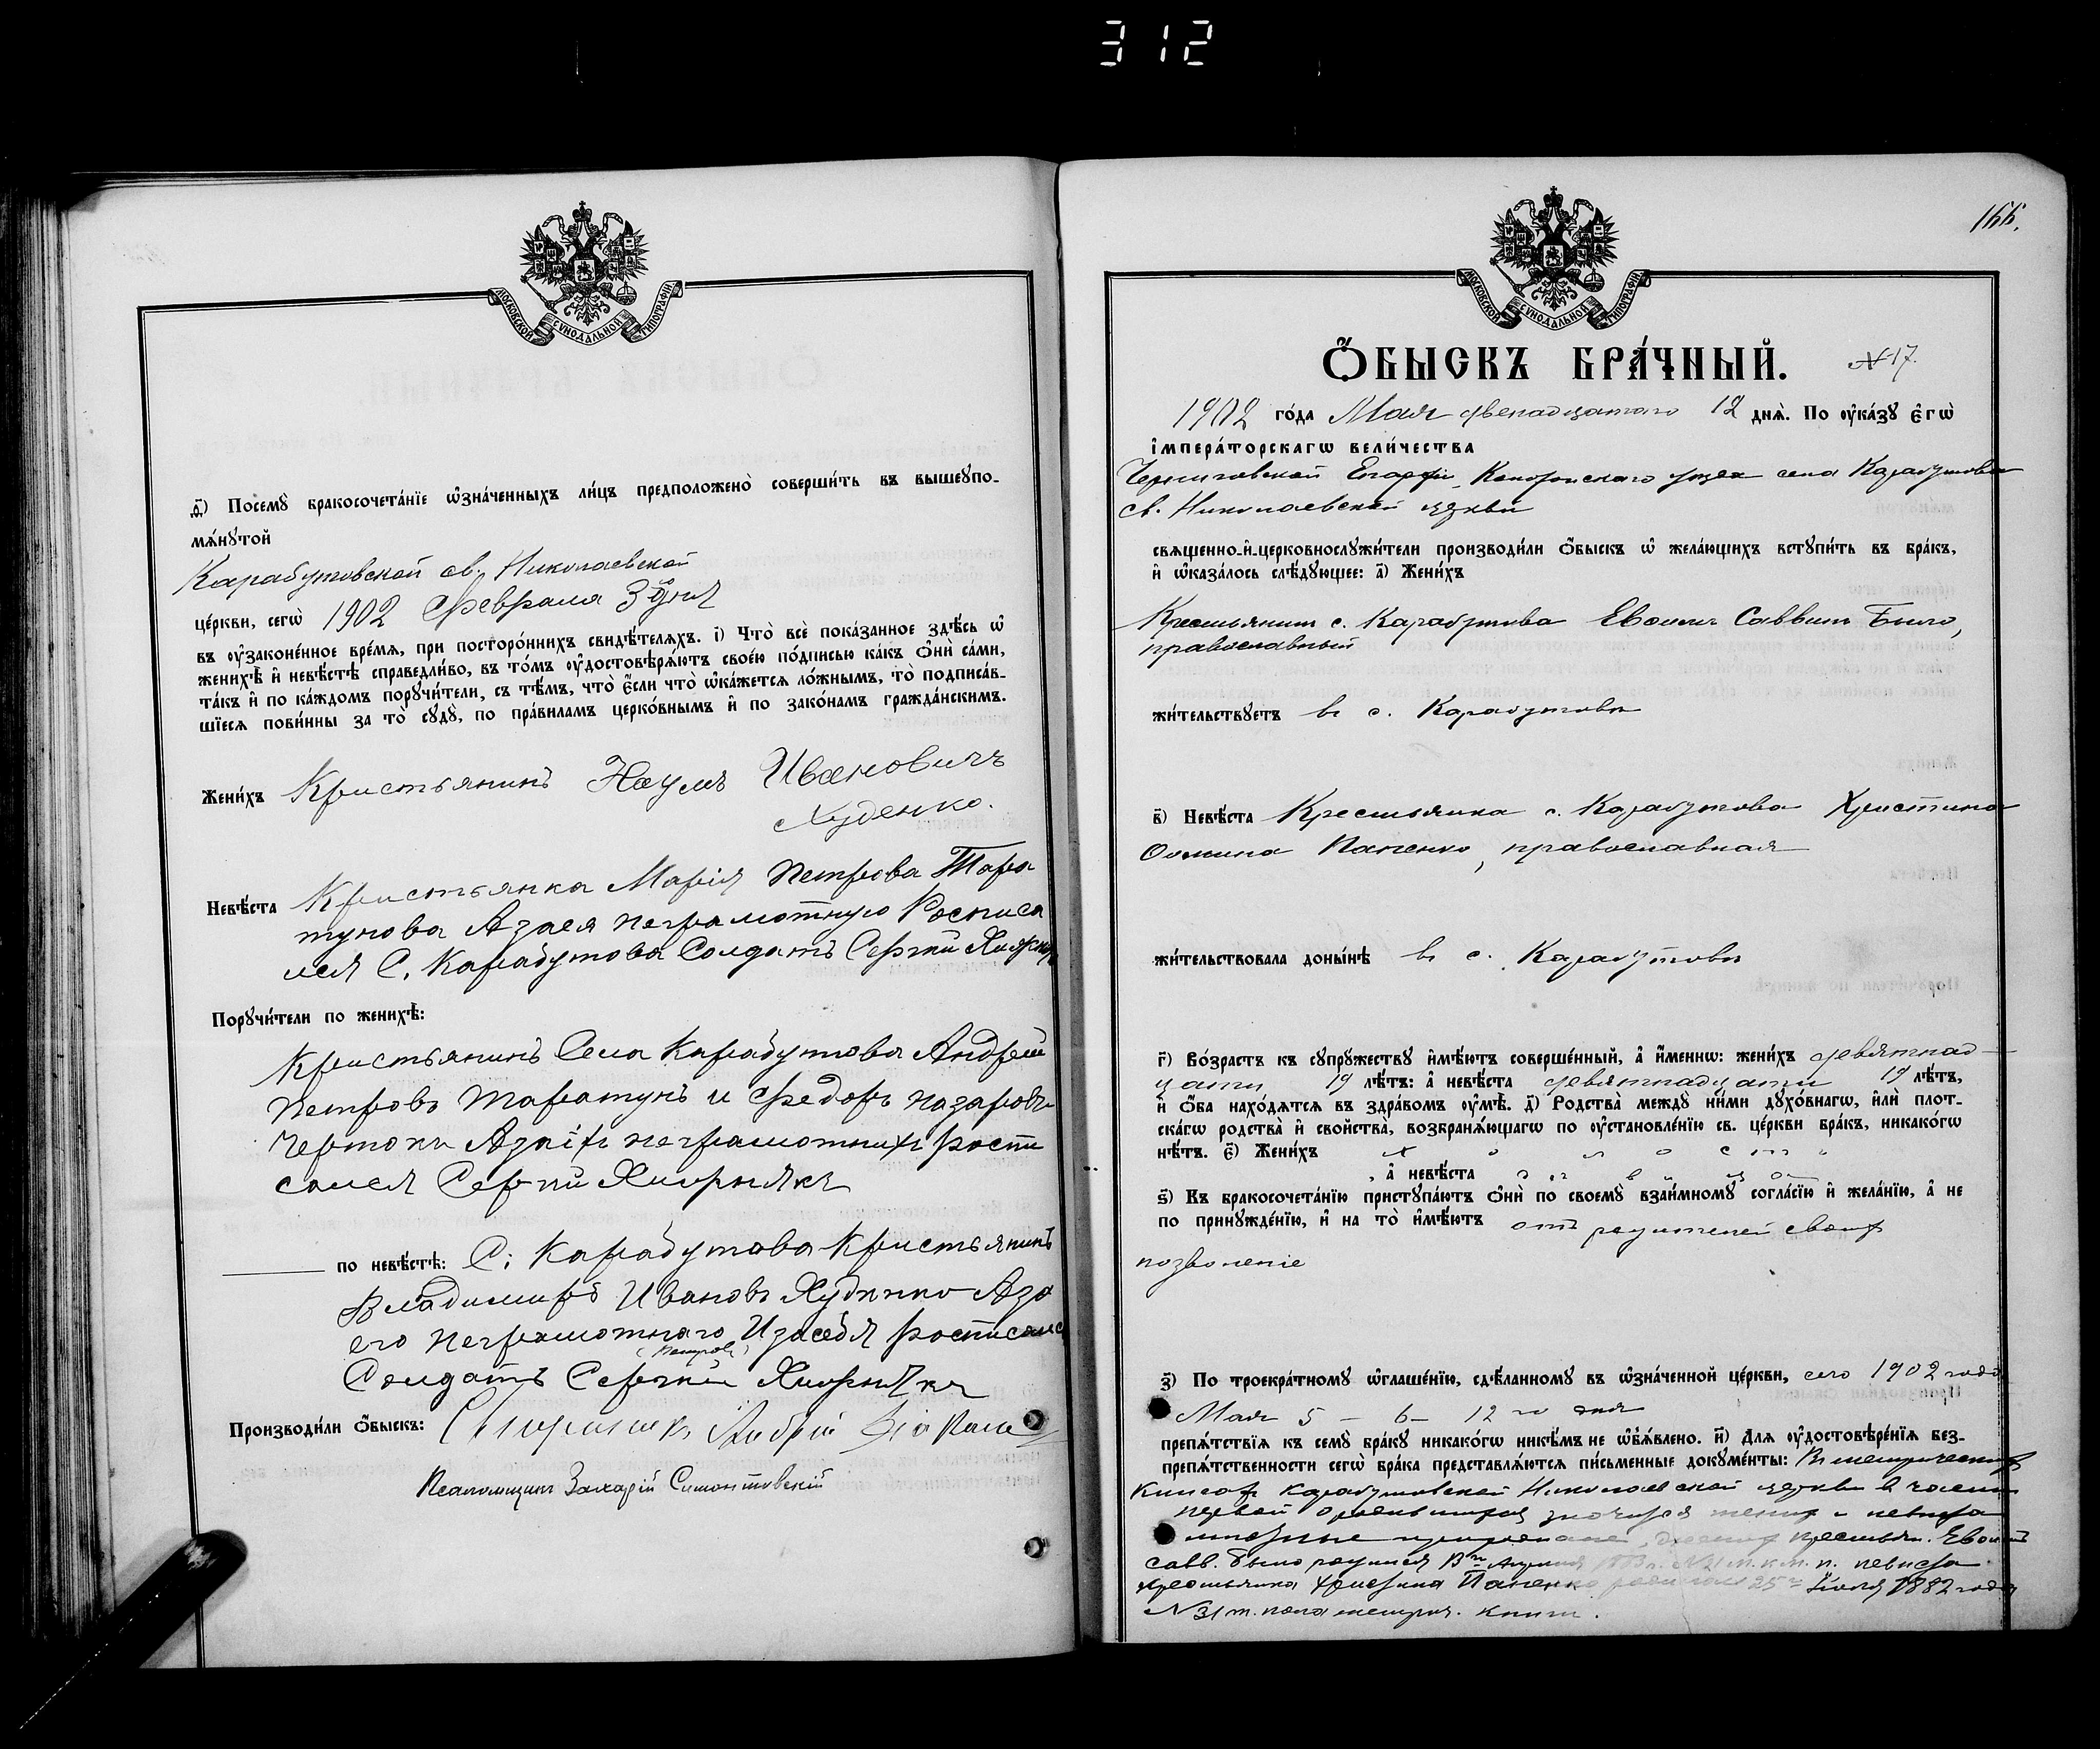 312
МОСКОВСКОЙ СѴНОДАЛЬНОЙ ТИПОГРАФІИ
ѳ҃) Посемꙋ̀ бракосочета́нїе ѡ҆зна́ченныхъ ли́цъ предположено̀ соверши́ть въ вышеꙋпо-
мѧ́нꙋтой
Карабутовской св. Николаевской
це́ркви, сегѡ̀ 1902 Февраля 3 дня
въ ᲂу҆зако́ненное вре́мѧ, при посторо́ннихъ свидѣ́телѧхъ. і҃) Что̀ всѐ пока́занное здѣ́сь ѡ҆
женихѣ̀ и҆ невѣ́стѣ справедли́во, въ то́мъ ᲂу҆достовѣрѧ́ютъ свое́ю по́дписью ка́къ ѻ҆нѝ са́ми,
та́къ и҆ по ка́ждомъ порꙋчи́тели, съ тѣ́мъ, что̀ є҆́сли что̀ ѡ҆ка́жетсѧ ло́жнымъ, то̀ подписа́в-
шїесѧ пови́нны за то̀ сꙋдꙋ̀, по пра́виламъ церко́внымъ и҆ по зако́намъ гражда́нскимъ.
Жени́хъ Кристьянинъ Наумъ Ивановичъ
Худенко.
Невѣ́ста Кристьянка Марія Петрова Тара
тунова Азаея неграмотную Росписа
лся С. Карабутова Солдатъ Сергій
Порꙋчи́тели по женихѣ̀:
Кристьянинъ Села Карабутова Андрей
Петровъ Таратунъ и Федоръ Назаровъ
Чертокъ Азаіхъ неграмотнихъ Роспи
сался Сергій
по невѣ́стѣ: С. Карабутова Кристьянинъ
Владимиръ Ивановъ Худенко Аза
его неграмотнаго Изасебя росписался
(Петровъ)
Солдатъ Сергій
Производи́ли ѻ҆́быскъ: Священникъ Андрій
Псаломщикъ Захарій Симонтовскій
166.
МОСКОВСКОЙ СѴНОДАЛЬНОЙ ТИПОГРАФІИ
Ѻ҆́БЫСКЪ БРА́ЧНЫЙ. №17.
1902 го́да Мая двенадцатаго 12 днѧ̀. По ᲂу҆ка́зꙋ є҆гѡ̀
і҆мпера́торскагѡ вели́чества
Черниговской Епархіи, Конотопскаго уезда села Карабутова
св. Николаевской церкви
свѧще́нно-и҆-церковнослꙋжи́тели производи́ли ѻ҆́быскъ ѡ҆ жела́ющихъ встꙋпи́ть въ бра́къ,
и҆ ѡ҆каза́лось слѣ́дꙋющее: а҃) Жени́хъ
Крестьянинъ с. Карабутова Евфимъ Саввинъ Било,
православный
жи́тельствꙋетъ въ с. Карабутовѣ
в҃) Невѣ́ста Крестьянка с. Карабутова Христина
Фомина Паненко, православная
жи́тельствовала доны́нѣ въ с. Карабутовѣ
г҃) Во́зрастъ къ сꙋпрꙋ́жествꙋ и҆мѣ́ютъ соверше́нный, а҆ и҆́меннѡ: жени́хъ девятнад-
цати 19 лѣ́тъ: а҆ невѣ́ста девятнадцати 19 лѣ́тъ,
и҆ ѻ҆́ба нахо́дѧтсѧ въ здра́вомъ ᲂу҆мѣ̀. д҃) Родства̀ междꙋ̀ ни́ми дꙋхо́внагѡ, и҆лѝ плот-
ска́гѡ родства̀ и҆ свойства̀, возбранѧ́ющагѡ по ᲂу҆становле́нїю св. це́ркви бра́къ, никако́гѡ
нѣ́тъ. є҃) Жени́хъ х о л о с т ъ
, а҆ невѣ́ста д ѣ в и ц а
ѕ҃) Къ бракосочета́нїю пристꙋпа́ютъ ѻ҆нѝ по своемꙋ̀ взаи́мномꙋ согла́сїю и҆ жела́нїю, а҆ не
по принꙋжде́нїю, и҆ на то̀ и҆мѣ́ютъ отъ родителей своихъ
позволеніе
з҃) По троекра́тномꙋ ѡ҆глаше́нїю, сдѣ́ланномꙋ въ ѡ҆зна́ченной це́ркви, сего 1902 года
Мая 5 – 6 – 12 го дня
препѧ́тствїѧ къ семꙋ̀ бра́кꙋ никако́гѡ никѣ́мъ не ѡ҆б̾ѧ́влено. и҃) Длѧ ᲂу҆достовѣре́нїѧ без-
препѧ́тственности сегѡ̀ бра́ка представлѧ́ютсѧ пи́сьменные докꙋме́нты: Въ метрическихъ
книгахъ Карабутовской Николаевской церкви в части
первой о родившихся значится женихъ и невеста
женихъ крестьян. Евфимъ
савв. Било родился невеста
крестьянка Христина Паненко родилась 25го Іюля 1882 года
№31 т. пола метрич. книги.